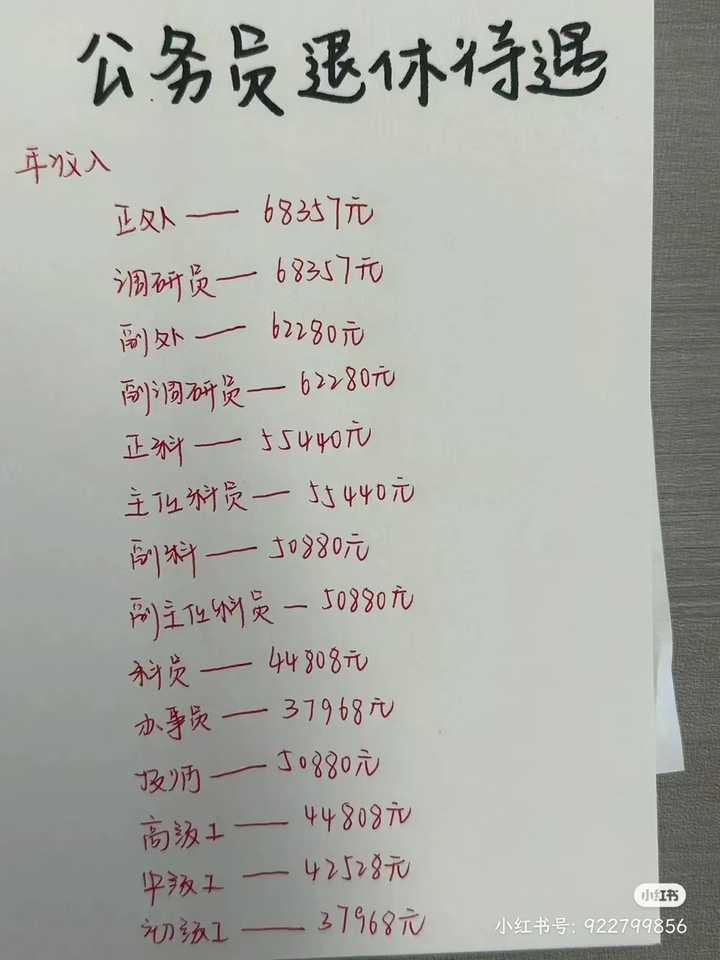 公务员退休待遇
年收入
正处 — 68357元
调研员 — 68357元
副处 — 62280元
副调研员 — 62280元
正科 — 55440元
主任科员 — 55440元
副科 — 50880元
副主任科员 — 50880元
科员 — 44808元
办事员 — 37968元
技师 — 50880元
高级工 — 44808元
中级工 — 42528元
初级工 — 37968元
小红书
小红书号: 922799856